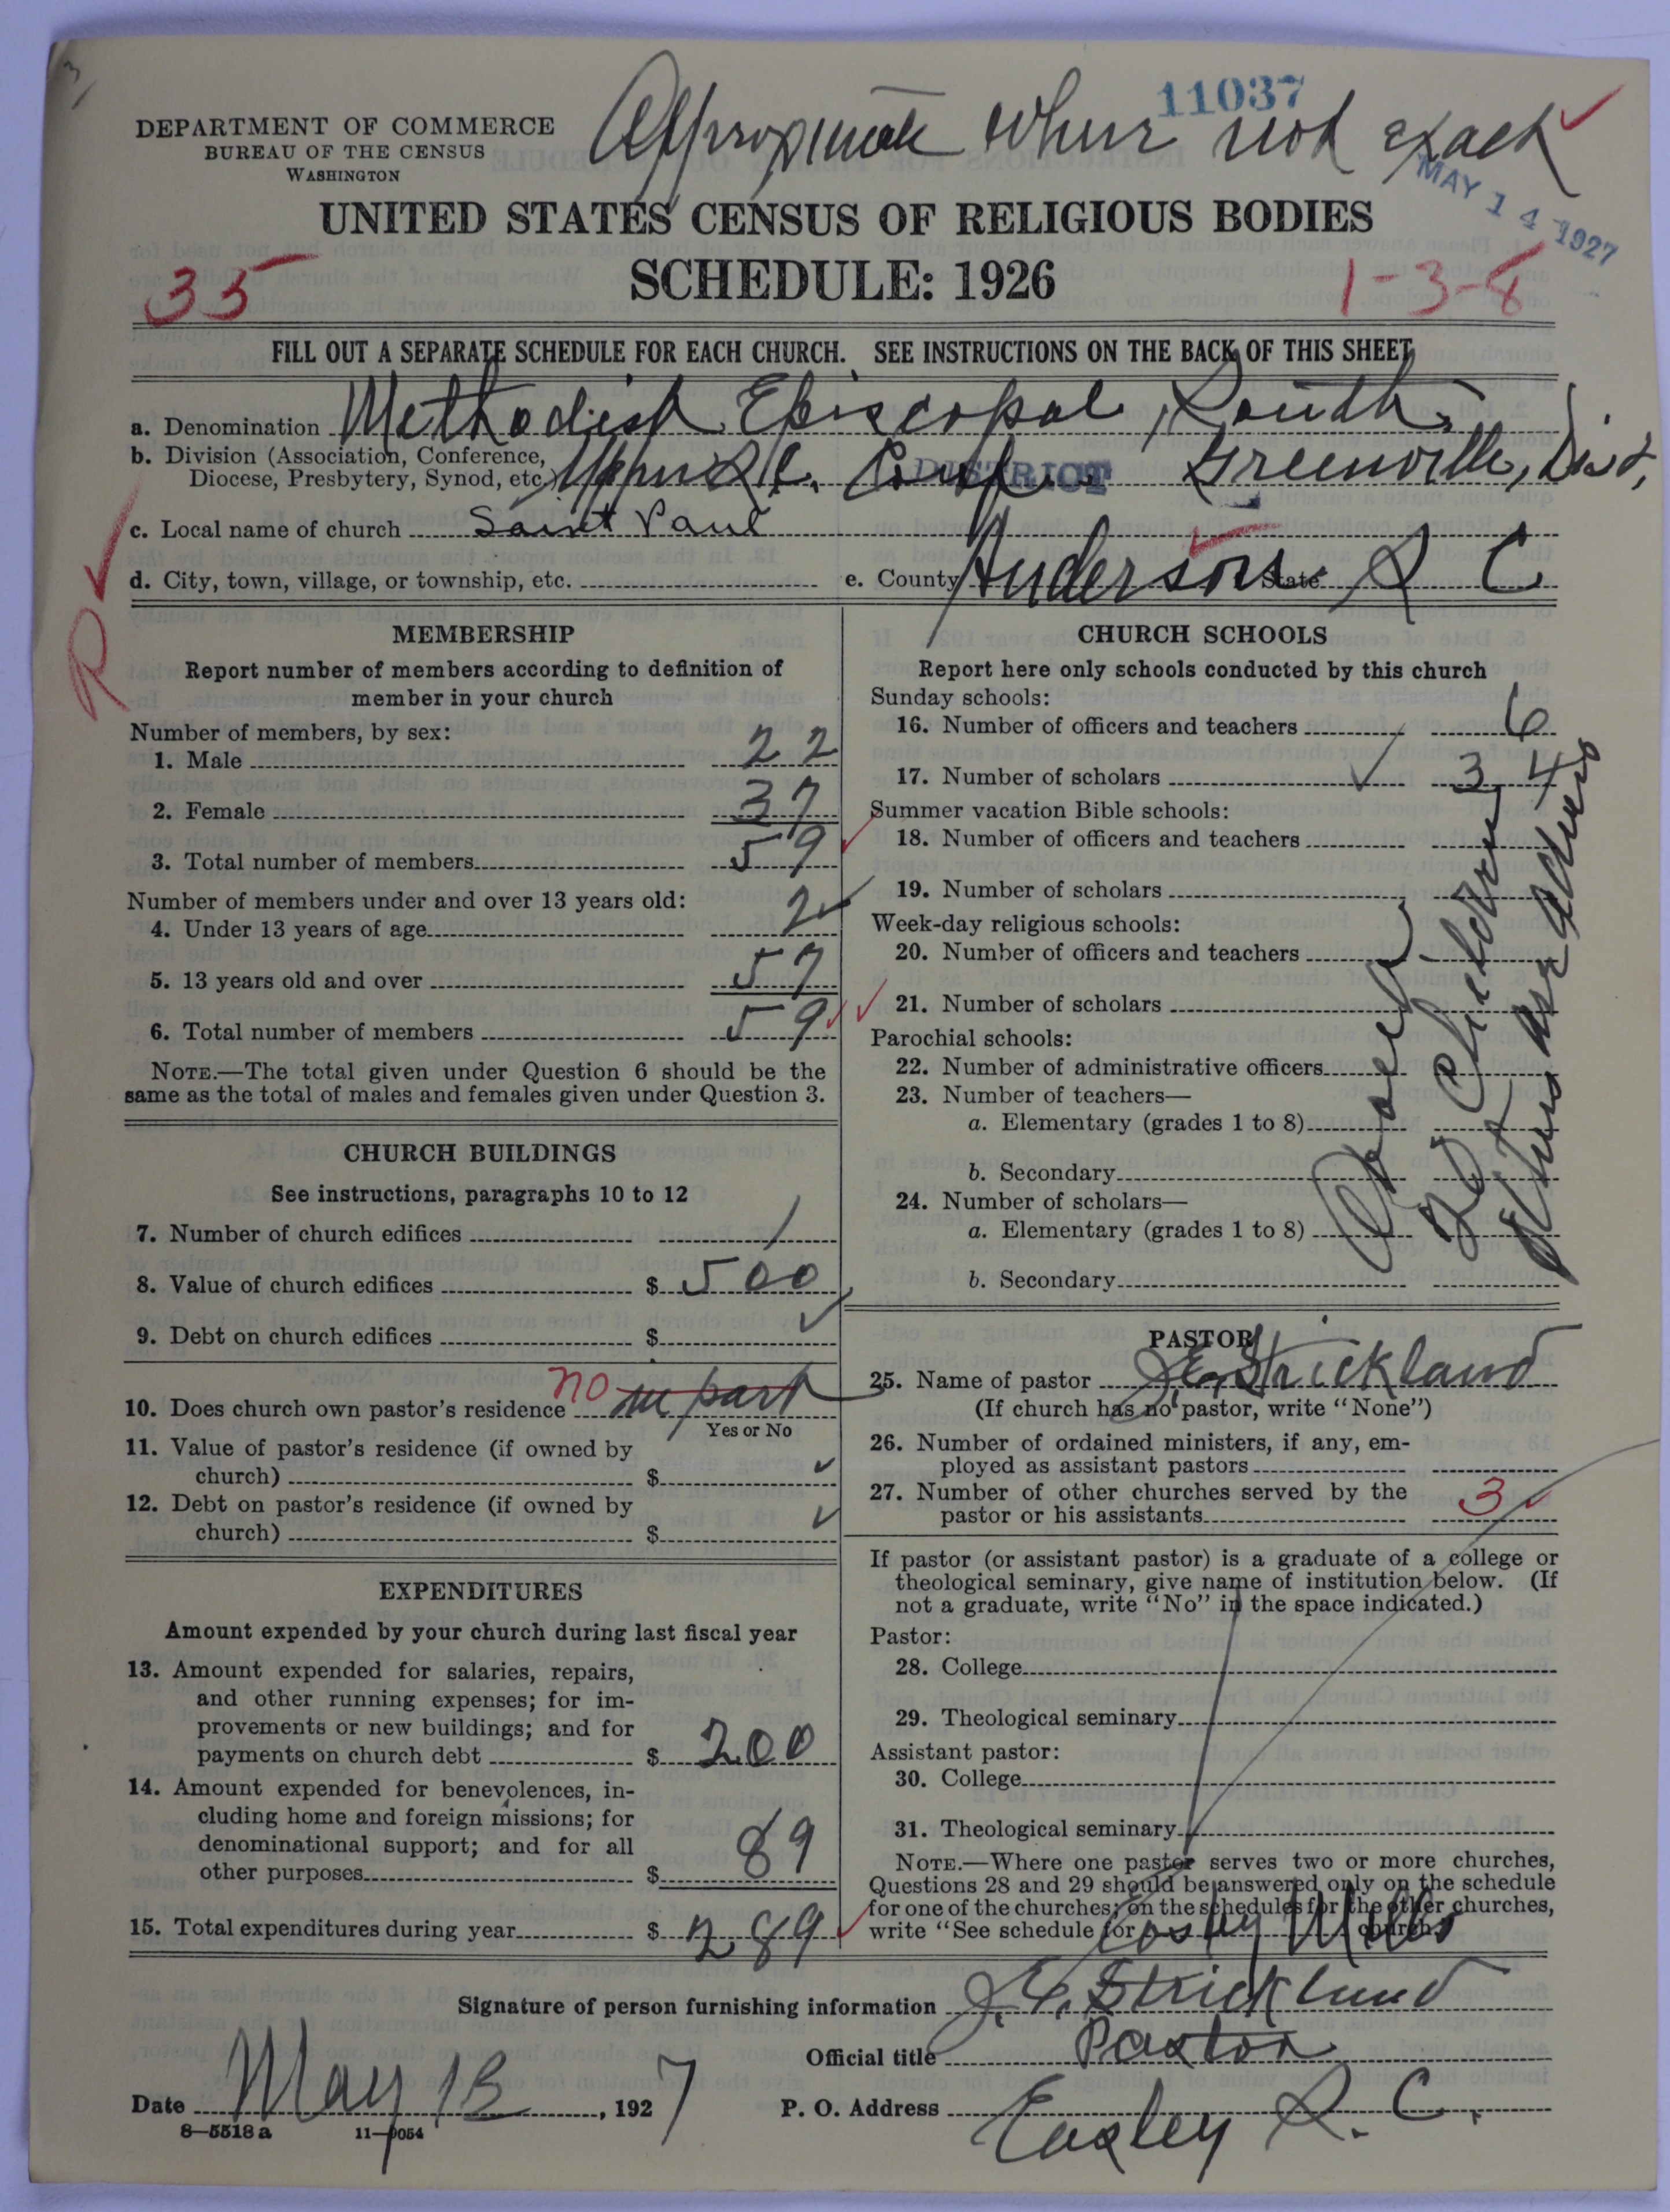 3
11037
Approximate where not exact
DEPARTMENT OF COMMERCE
BUREAU OF THE CENSUS
WASHINGTON
MAY 14 1927
UNITED STATES CENSUS OF RELIGIOUS BODIES
SCHEDULE: 1926
35
1-3-8
FILL OUT A SEPARATE SCHEDULE FOR EACH CHURCH. SEE INSTRUCTIONS ON THE BACK OF THIS SHEET
a. Denomination Methodist Episcopal, South,
b. Division (Association, Conference,
Diocese, Presbytery, Synod, etc.) Upper S.C. Conf. DISTRICT Greenville, Dist,
c. Local name of church Saint Paul
d. City, town, village, or township, etc.
e. County Anderson State S C
R
MEMBERSHIP
Report number of members according to definition of
member in your church
Number of members, by sex:
1. Male 22
2. Female 37
3. Total number of members 59
Number of members under and over 13 years old:
4. Under 13 years of age 2
5. 13 years old and over 57
6. Total number of members 59
NOTE.—The total given under Question 6 should be the
same as the total of males and females given under Question 3.
CHURCH BUILDINGS
See instructions, paragraphs 10 to 12
7. Number of church edifices 1
8. Value of church edifices $ 500
9. Debt on church edifices $
10. Does church own pastor's residence no in part
Yes or No
11. Value of pastor's residence (if owned by
church) $
12. Debt on pastor's residence (if owned by
church) $
EXPENDITURES
Amount expended by your church during last fiscal year
13. Amount expended for salaries, repairs,
and other running expenses; for im-
provements or new buildings; and for
payments on church debt $ 200
14. Amount expended for benevolences, in-
cluding home and foreign missions; for
denominational support; and for all
other purposes $ 89
15. Total expenditures during year $ 289
CHURCH SCHOOLS
Report here only schools conducted by this church
Sunday schools:
16. Number of officers and teachers 6
17. Number of scholars 34
Summer vacation Bible schools:
18. Number of officers and teachers
19. Number of scholars
Week-day religious schools:
20. Number of officers and teachers
21. Number of scholars
Parochial schools:
22. Number of administrative officers
23. Number of teachers—
a. Elementary (grades 1 to 8)
b. Secondary
24. Number of scholars—
a. Elementary (grades 1 to 8)
b. Secondary
PASTOR
25. Name of pastor J. E. Strickland
(If church has no pastor, write "None")
26. Number of ordained ministers, if any, em-
ployed as assistant pastors
27. Number of other churches served by the
pastor or his assistants 3
If pastor (or assistant pastor) is a graduate of a college or
theological seminary, give name of institution below. (If
not a graduate, write "No" in the space indicated.)
Pastor:
28. College
29. Theological seminary
Assistant pastor:
30. College
31. Theological seminary
NOTE.—Where one pastor serves two or more churches,
Questions 28 and 29 should be answered only on the schedule
for one of the churches; on the schedules for the other churches,
write "See schedule for Easley Mills church."
Signature of person furnishing information J. E. Strickland
Official title Pastor
Date May 13, 1927
P. O. Address Easley S. C.
8—5518 a 11—9054